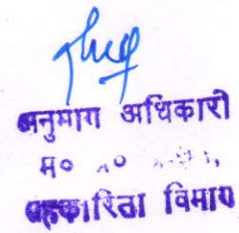 अनुभाग अधिकारी
म०
सहकारिता विभाग